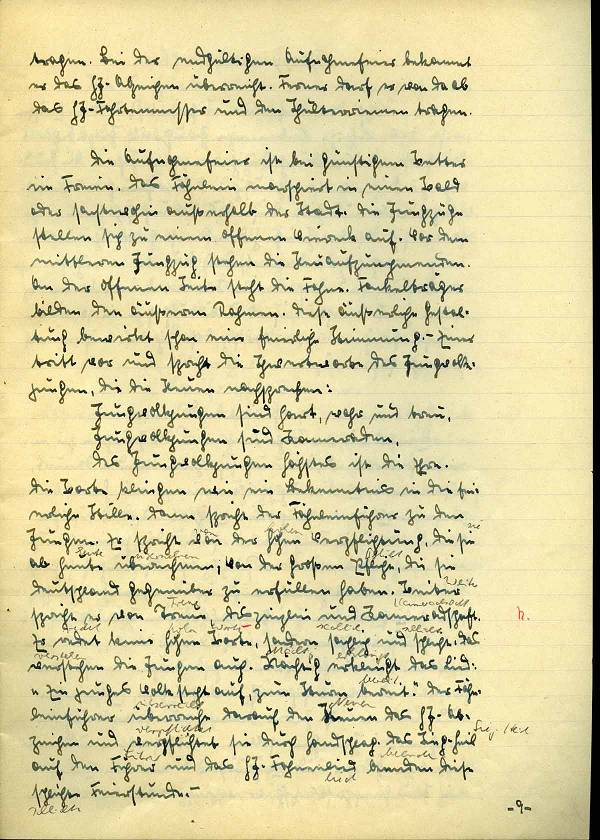 tragen. Bei der endgültigen Aufnahmefeier bekommt
er das HJ-Abzeichen überreicht. Ferner darf er von da ab
das HJ-Fahrtenmesser und den Schulterriemen tragen.
Die Aufnahmefeier ist bei günstigem Wetter
im Freien. Das Fähnlein marschiert in einen Wald
oder sonstwohin außerhalb der Stadt. Die Jungzüge
stellen sich zu einem offenen Viereck auf. Vor dem
mittleren Jungzug stehen die Neuaufzunehmenden.
An der offenen Seite steht die Fahne. Fackelträger
bilden den äußeren Rahmen. Diese äußerliche Gestal-
tung bewirkt schon eine feierliche Stimmung.- Einer
tritt vor und spricht die Schwertworte des Jungvolk-
jungen, die die Neuen nachsprechen:
Jungvolkjungen sind hart, wahr und treu,
Jungvolkjungen sind Kameraden,
Des Jungvolkjungen Höchstes ist die Ehre.
Die Worte klingen wie ein Bekenntnis in die fei-
erliche Stille. Dann spricht der Fähnleinführer zu den
Jungen. Er spricht von der hohen Verpflichtung, die sie
ab heute übernehmen; von der großen Pflicht, die sie
Deutschland gegenüber zu erfüllen haben. Weiter
spricht er von Treue, Disziplin und Kameradschaft.
Er redet keine hohen Worte, sondern sachlich und schlicht. Das
verstehen die Jungen auch. Mächtig erklingt das Lied:
"Ein junges Volk steht auf, zum Sturm bereit." Der Fähn-
leinführer überreicht darauf den Neuen das HJ-Ab-
zeichen und verpflichtet sie durch Handschlag. Das Sieg-Heil
auf den Führer und das HJ-Fahnenlied beenden diese
schlichte Feierstunde.-
-9-